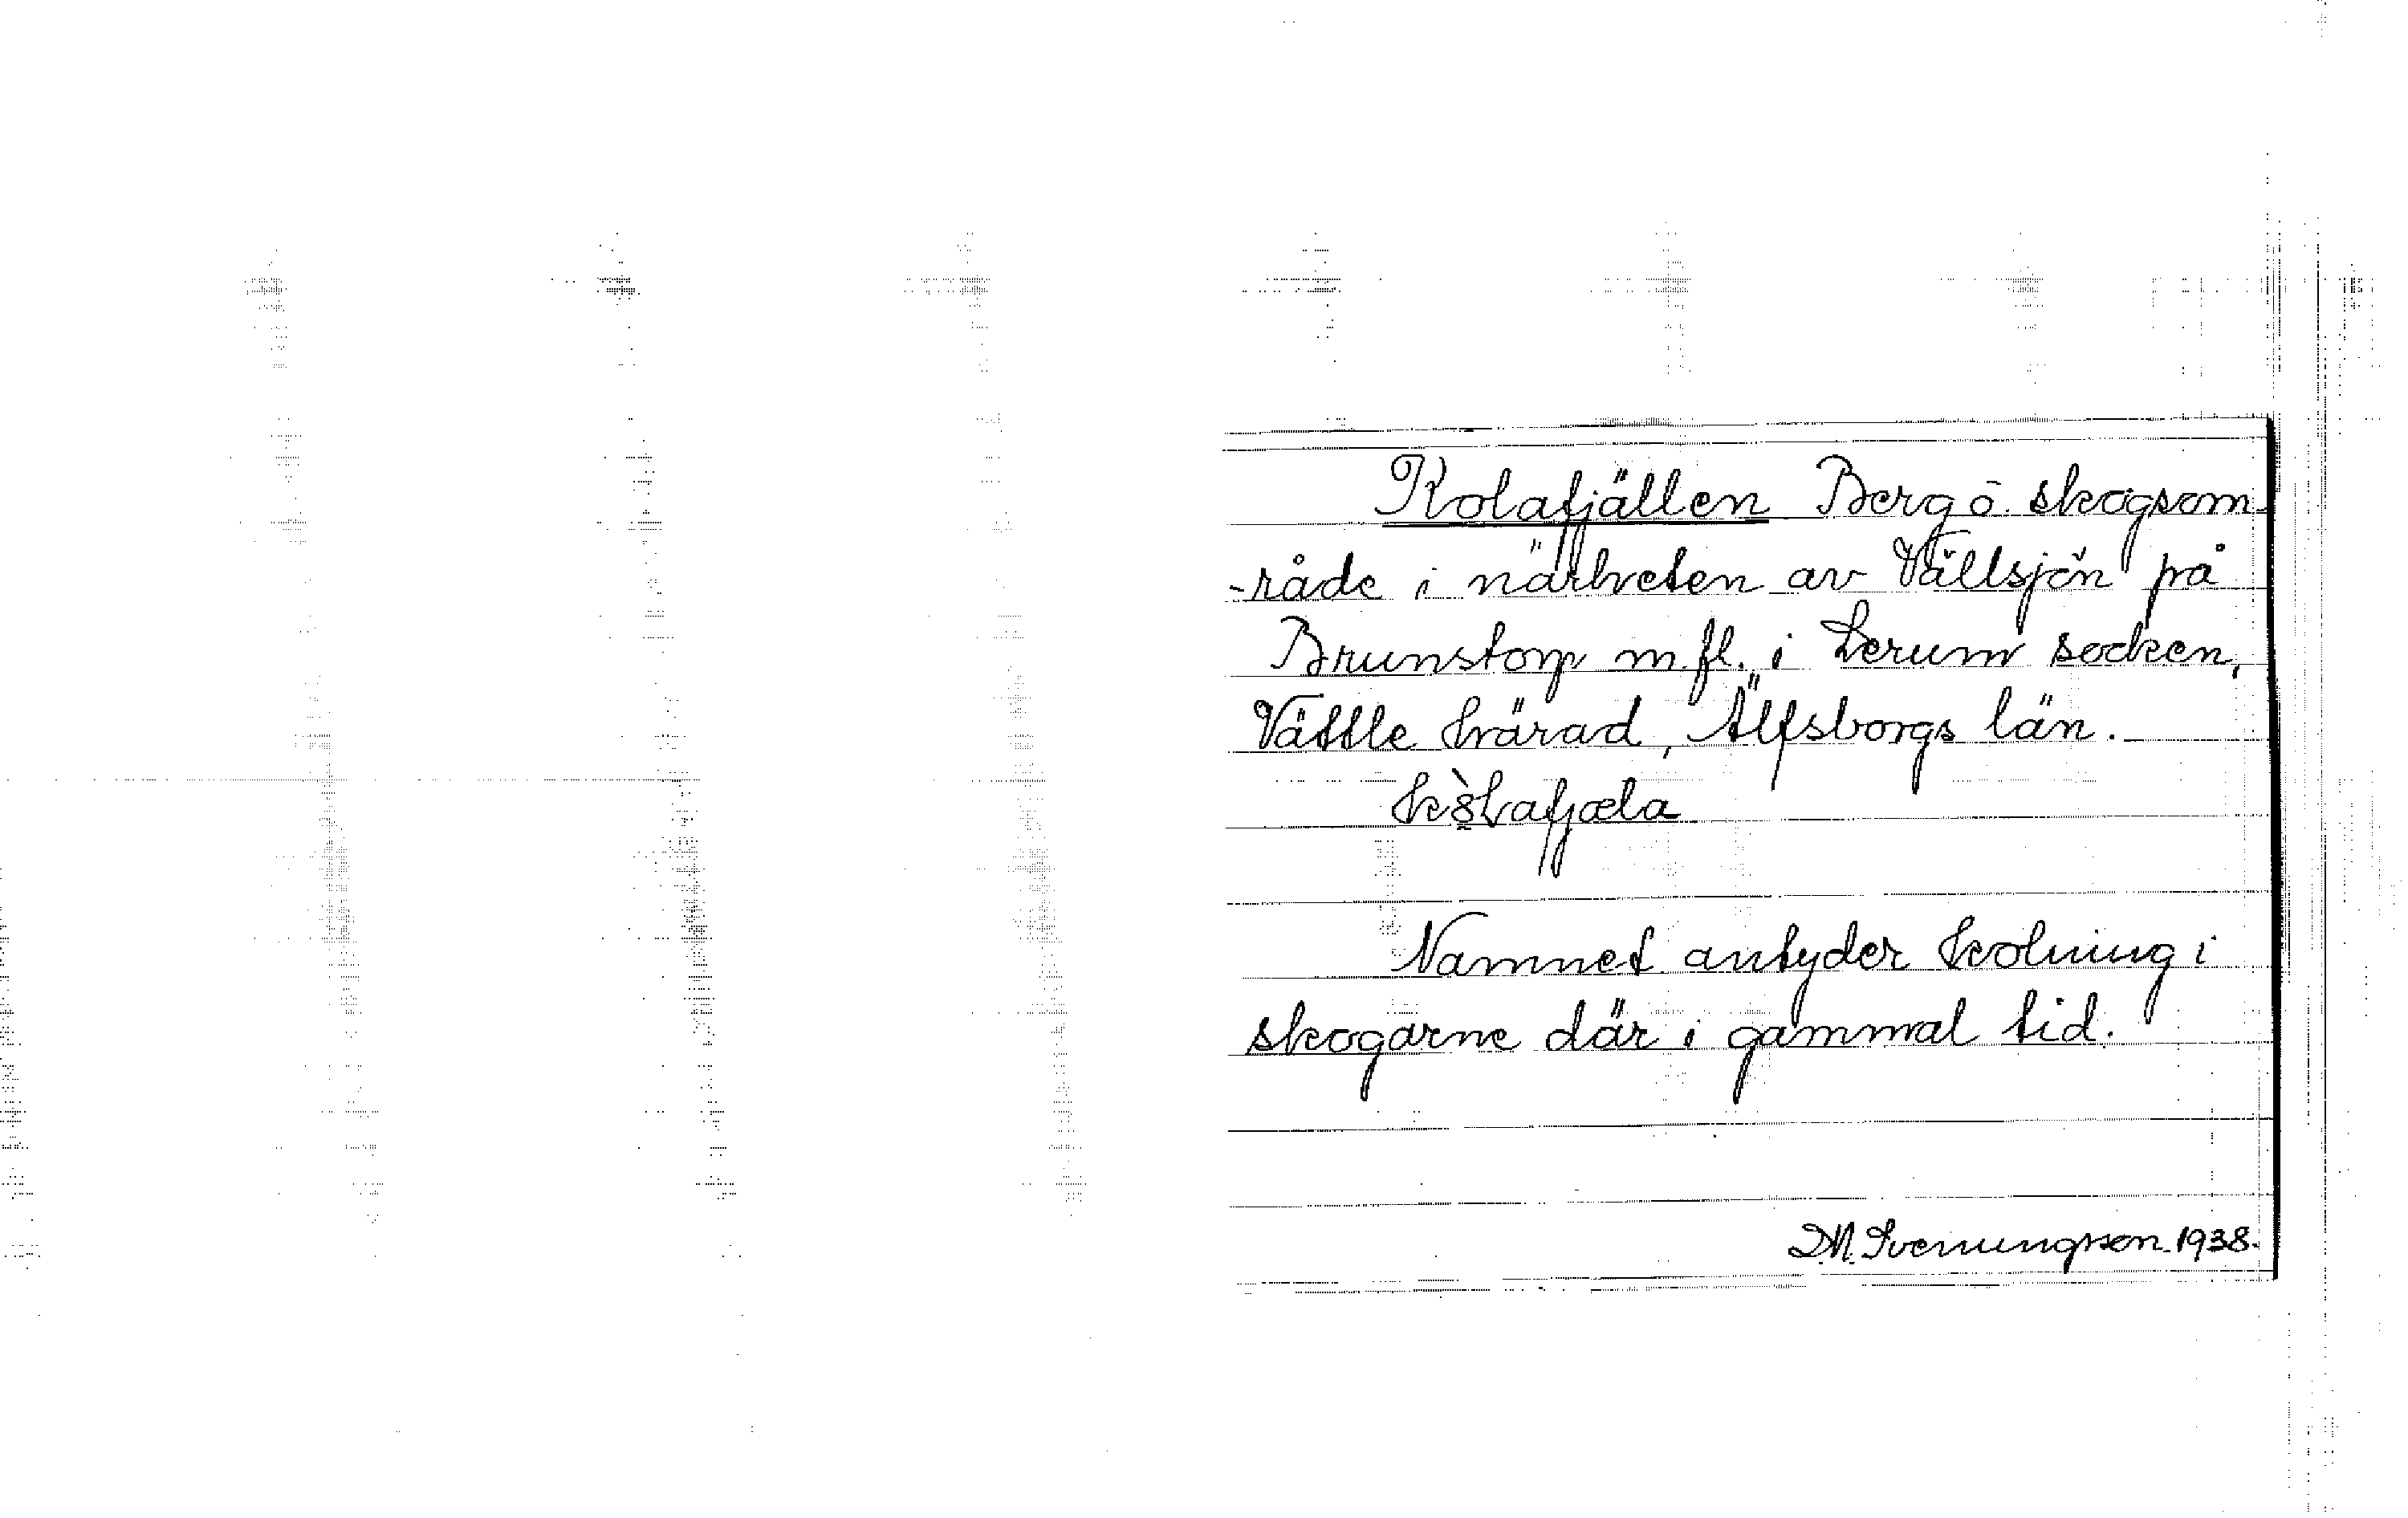 Kolafjällen Berg o. skogsom-
-råde i närheten av Vällsjön på
Brunstorp m.fl. i Lerum socken,
Vättle härad, Älfsborgs län.
Namnet antyder kolning i
skogarne där i gammal tid.
D.M. Svenungsson 1938.